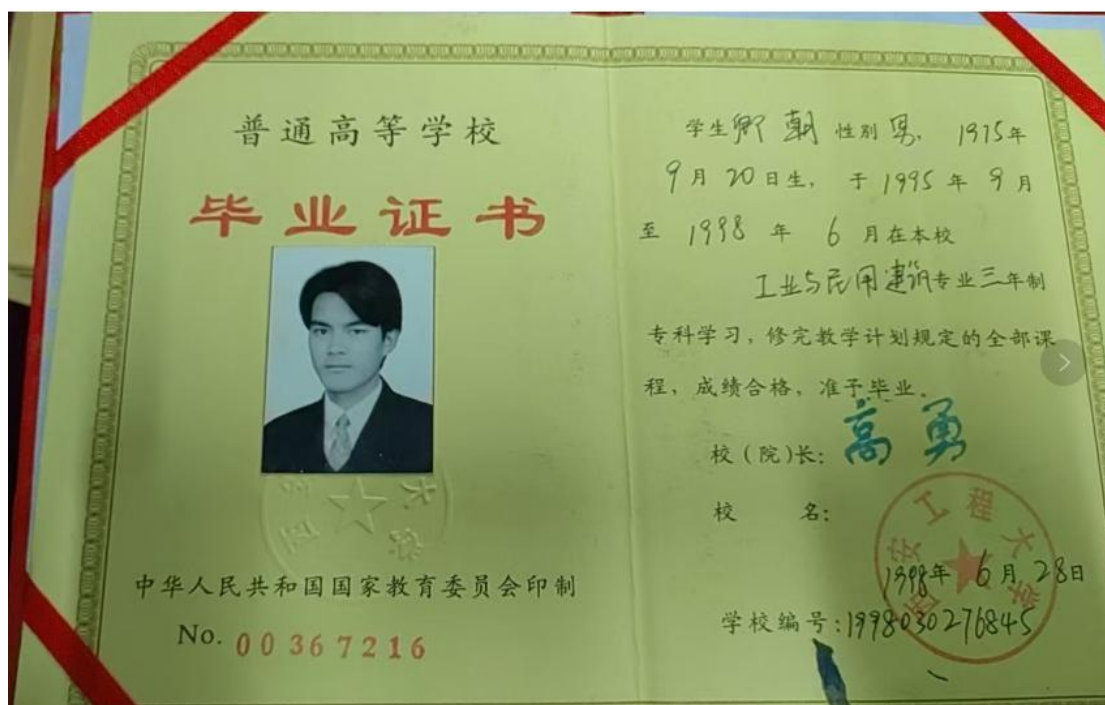 普通高等学校
毕业证书
中华人民共和国国家教育委员会印制
No. 00367216
学生卿 朝 性别男, 1975年
9月20日生, 于1995年9月
至 1998 年 6 月在本校
工业与民用建筑专业三年制
专科学习，修完教学计划规定的全部课
程，成绩合格，准予毕业.
校(院)长: 高勇
校 名:
西安工程大学
1998年 6月 28日
学校编号:1998030276845